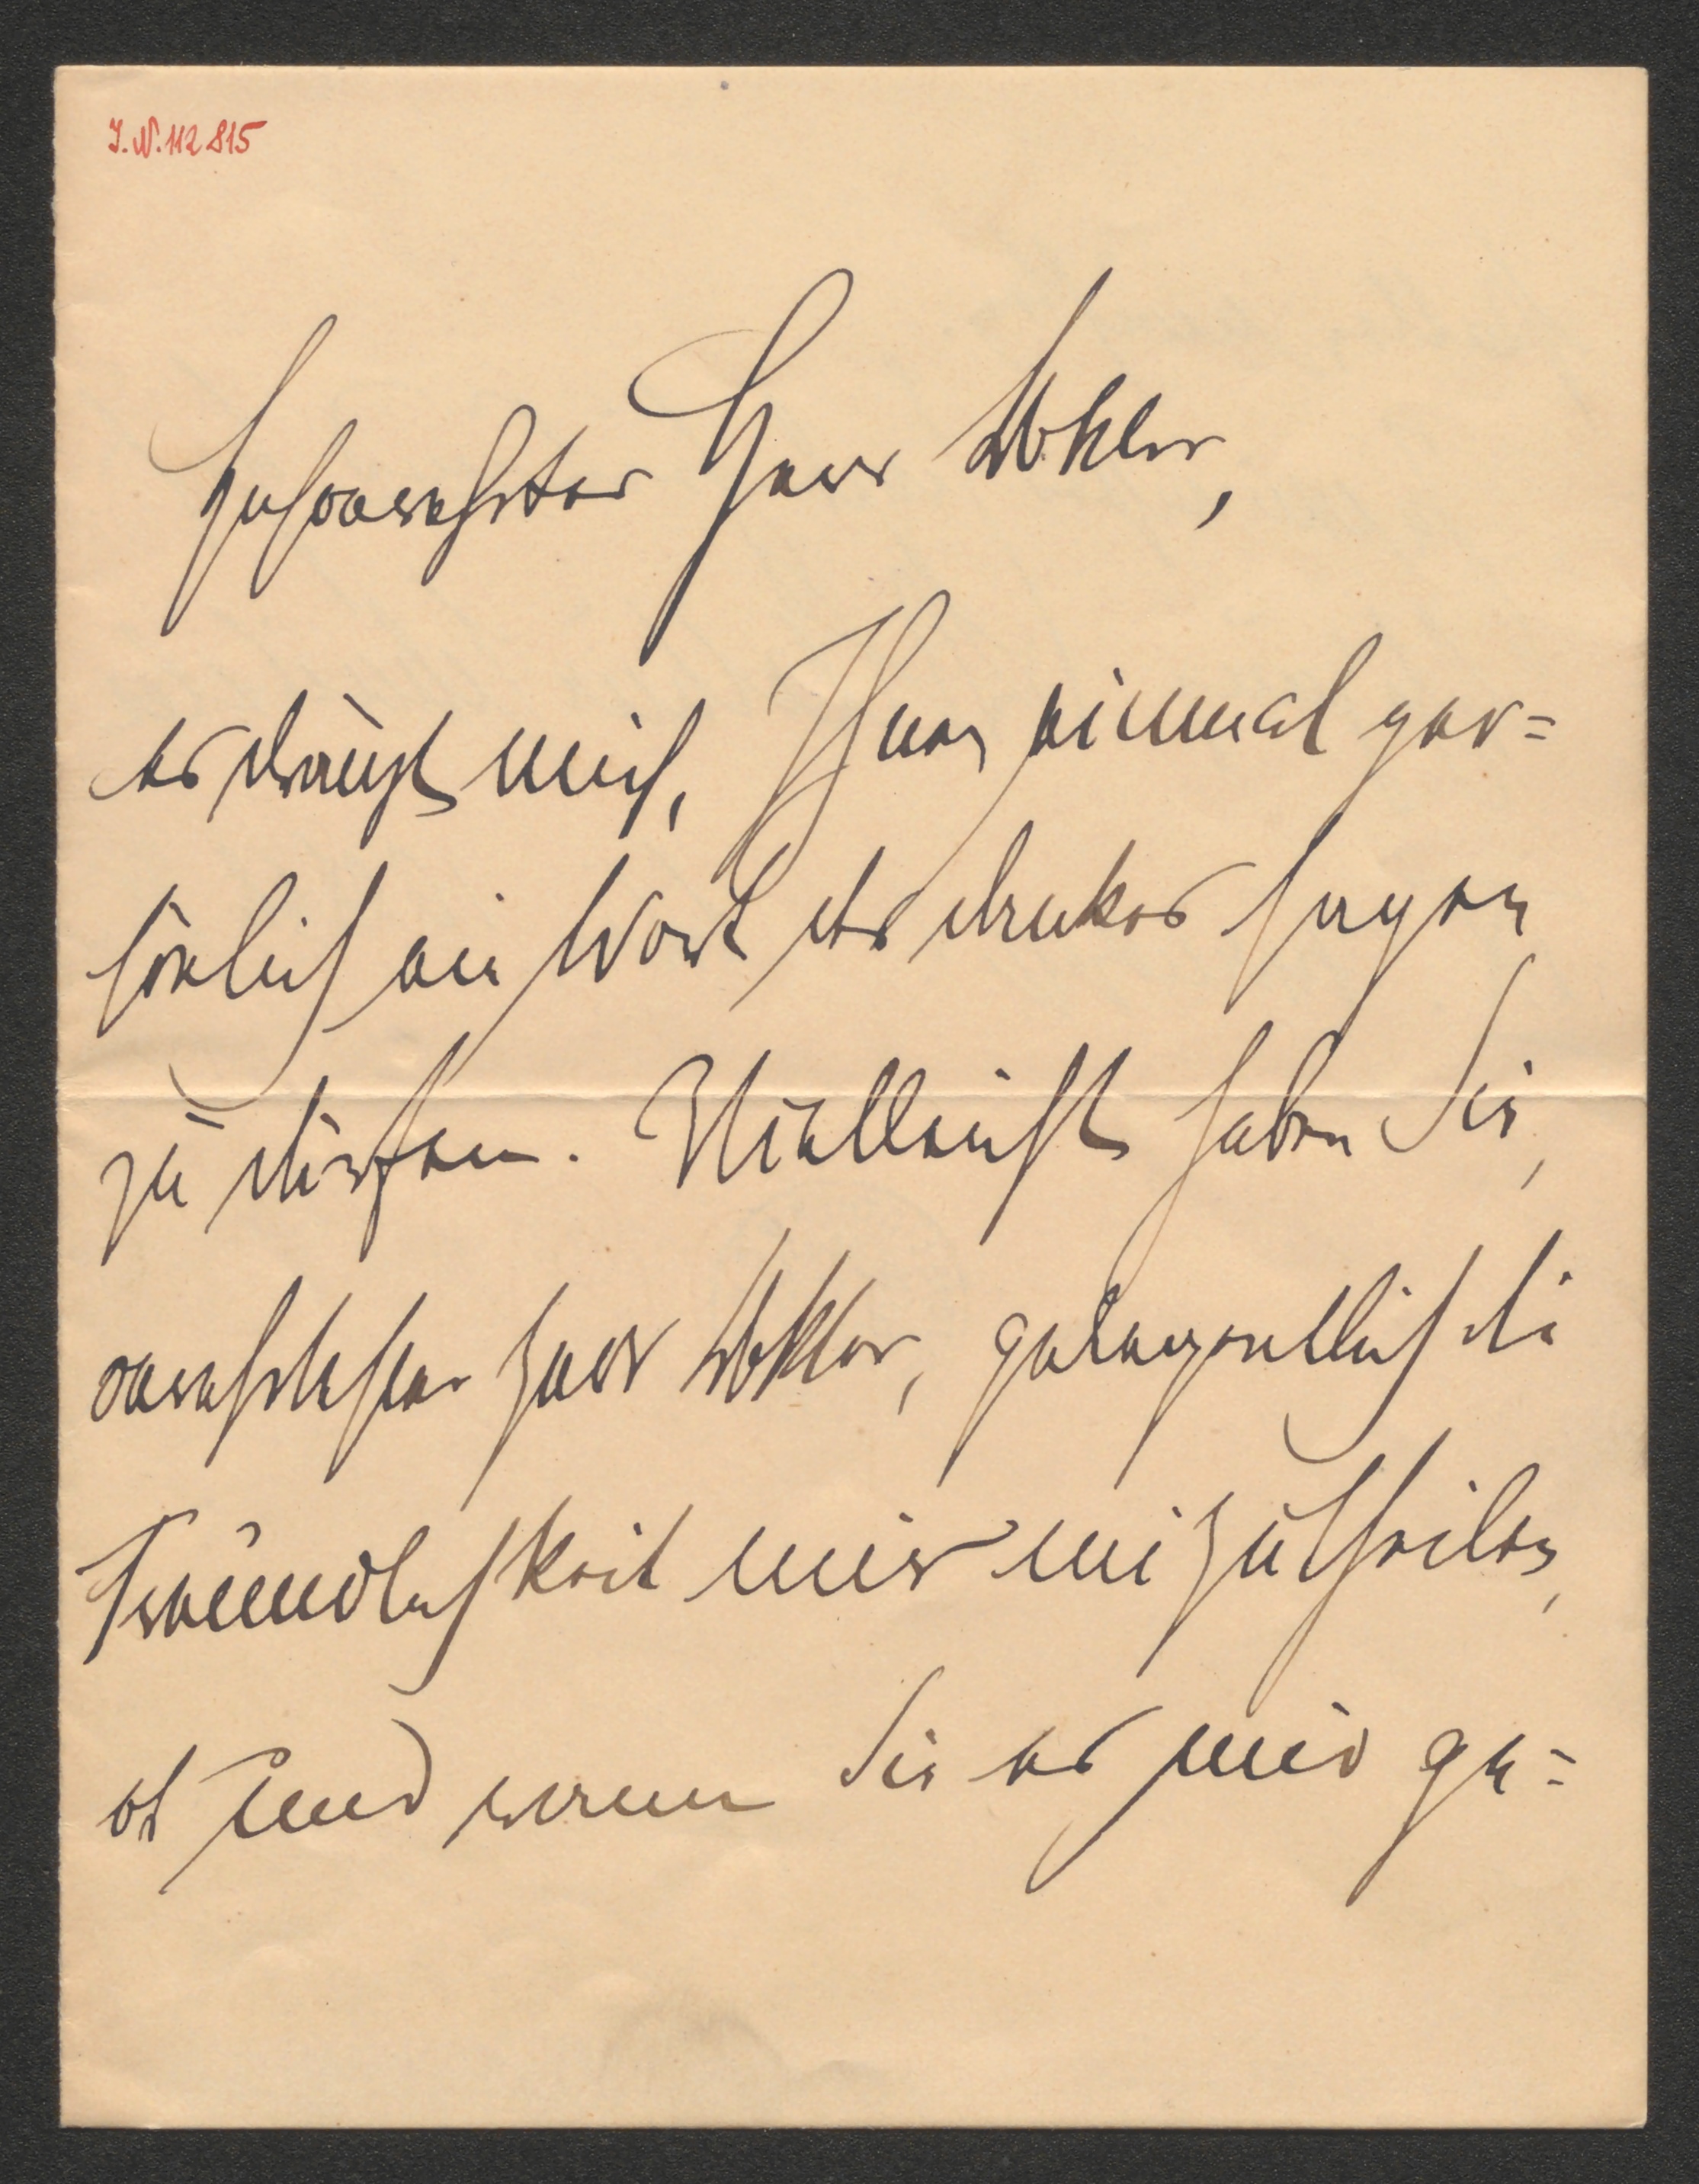 I.N. 112 815
Hochverehrter Herr Doktor,
es drängt mich, Ihnen einmal per=
sönlich ein Wort des Dankes sagen
zu dürfen. Vielleicht haben Sie,
verehrtester Herr Doktor, gelegentlich die
Freundlichkeit mir mizutheilen,
ob und wann Sie es mir ge=